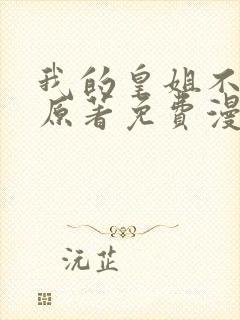 我的皇姐不
原著免费漫
沅芷